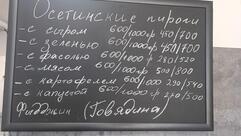 Осетинские пироги
– с сыром 600/1000гр 450/700
– с зеленью 600/1000гр 450/700
– с фасолью 600/1000гр 280/520
– с мясом 600/1000гр 500/800
– с картофелем 600/1000 290/540
– с капустой 600/1000гр 270/500
Фыдджин (Говядина)